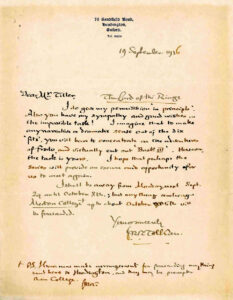 76 Sandfield Road,
Headington,
Oxford.
19 September 1956
Dear Mr Tiller,
The Lord of the Rings
I do give my permission 'in principle'.
Also you have my sympathy and good wishes in
the impossible task! I imagine that to make
any narrative or dramatic sense out of the six
you will have to concentrate on the adventures
of Frodo, and virtually cut out 'Book III'. However,
the task is yours. I hope that perhaps the
series will provide an occasion and opportunity
to meet again.
I shall be away from Monday next Sept.
24 until October 1st, but anything
Merton College up to about October will
be forwarded.
Yours sincerely
JRR Tolkien.
P.S. I have now made arrangement for forwarding anything
sent here to Headington, and may be prompter
than College. JRRT.